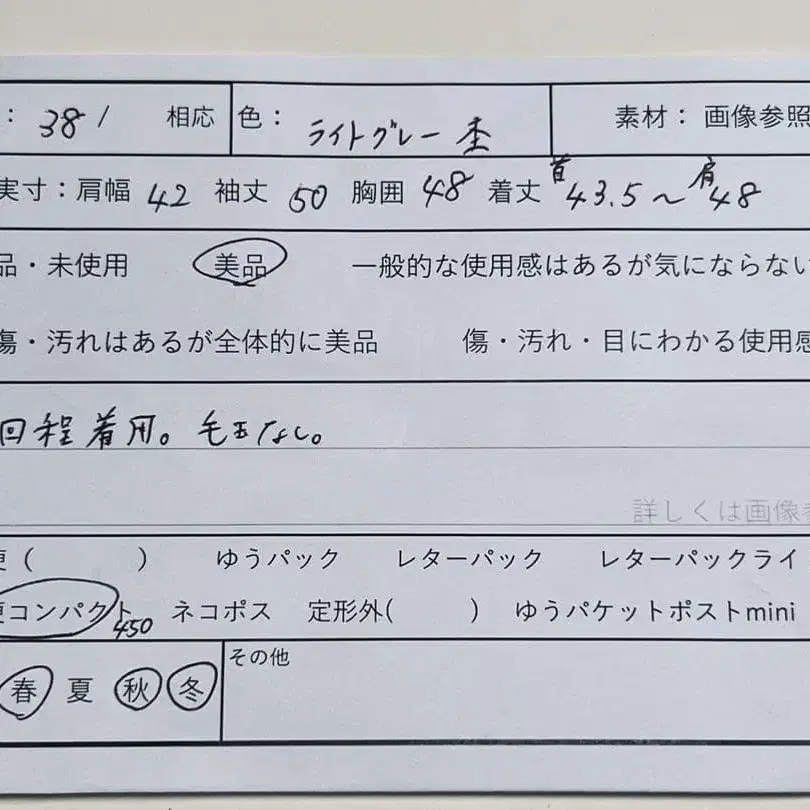 : 38 / 相応 色: ライトグレー杢 素材: 画像参照
実寸:肩幅 42 袖丈 50 胸囲 48 着丈 首43.5〜肩48
品・未使用 美品 一般的な使用感はあるが気にならない
傷・汚れはあるが全体的に美品 傷・汚れ・目にわかる使用感
回程着用。毛玉なし。
詳しくは画像参
便( ) ゆうパック レターパック レターパックライ
便コンパクト 450 ネコポス 定形外( ) ゆうパケットポストmini
春 夏 秋 冬 その他